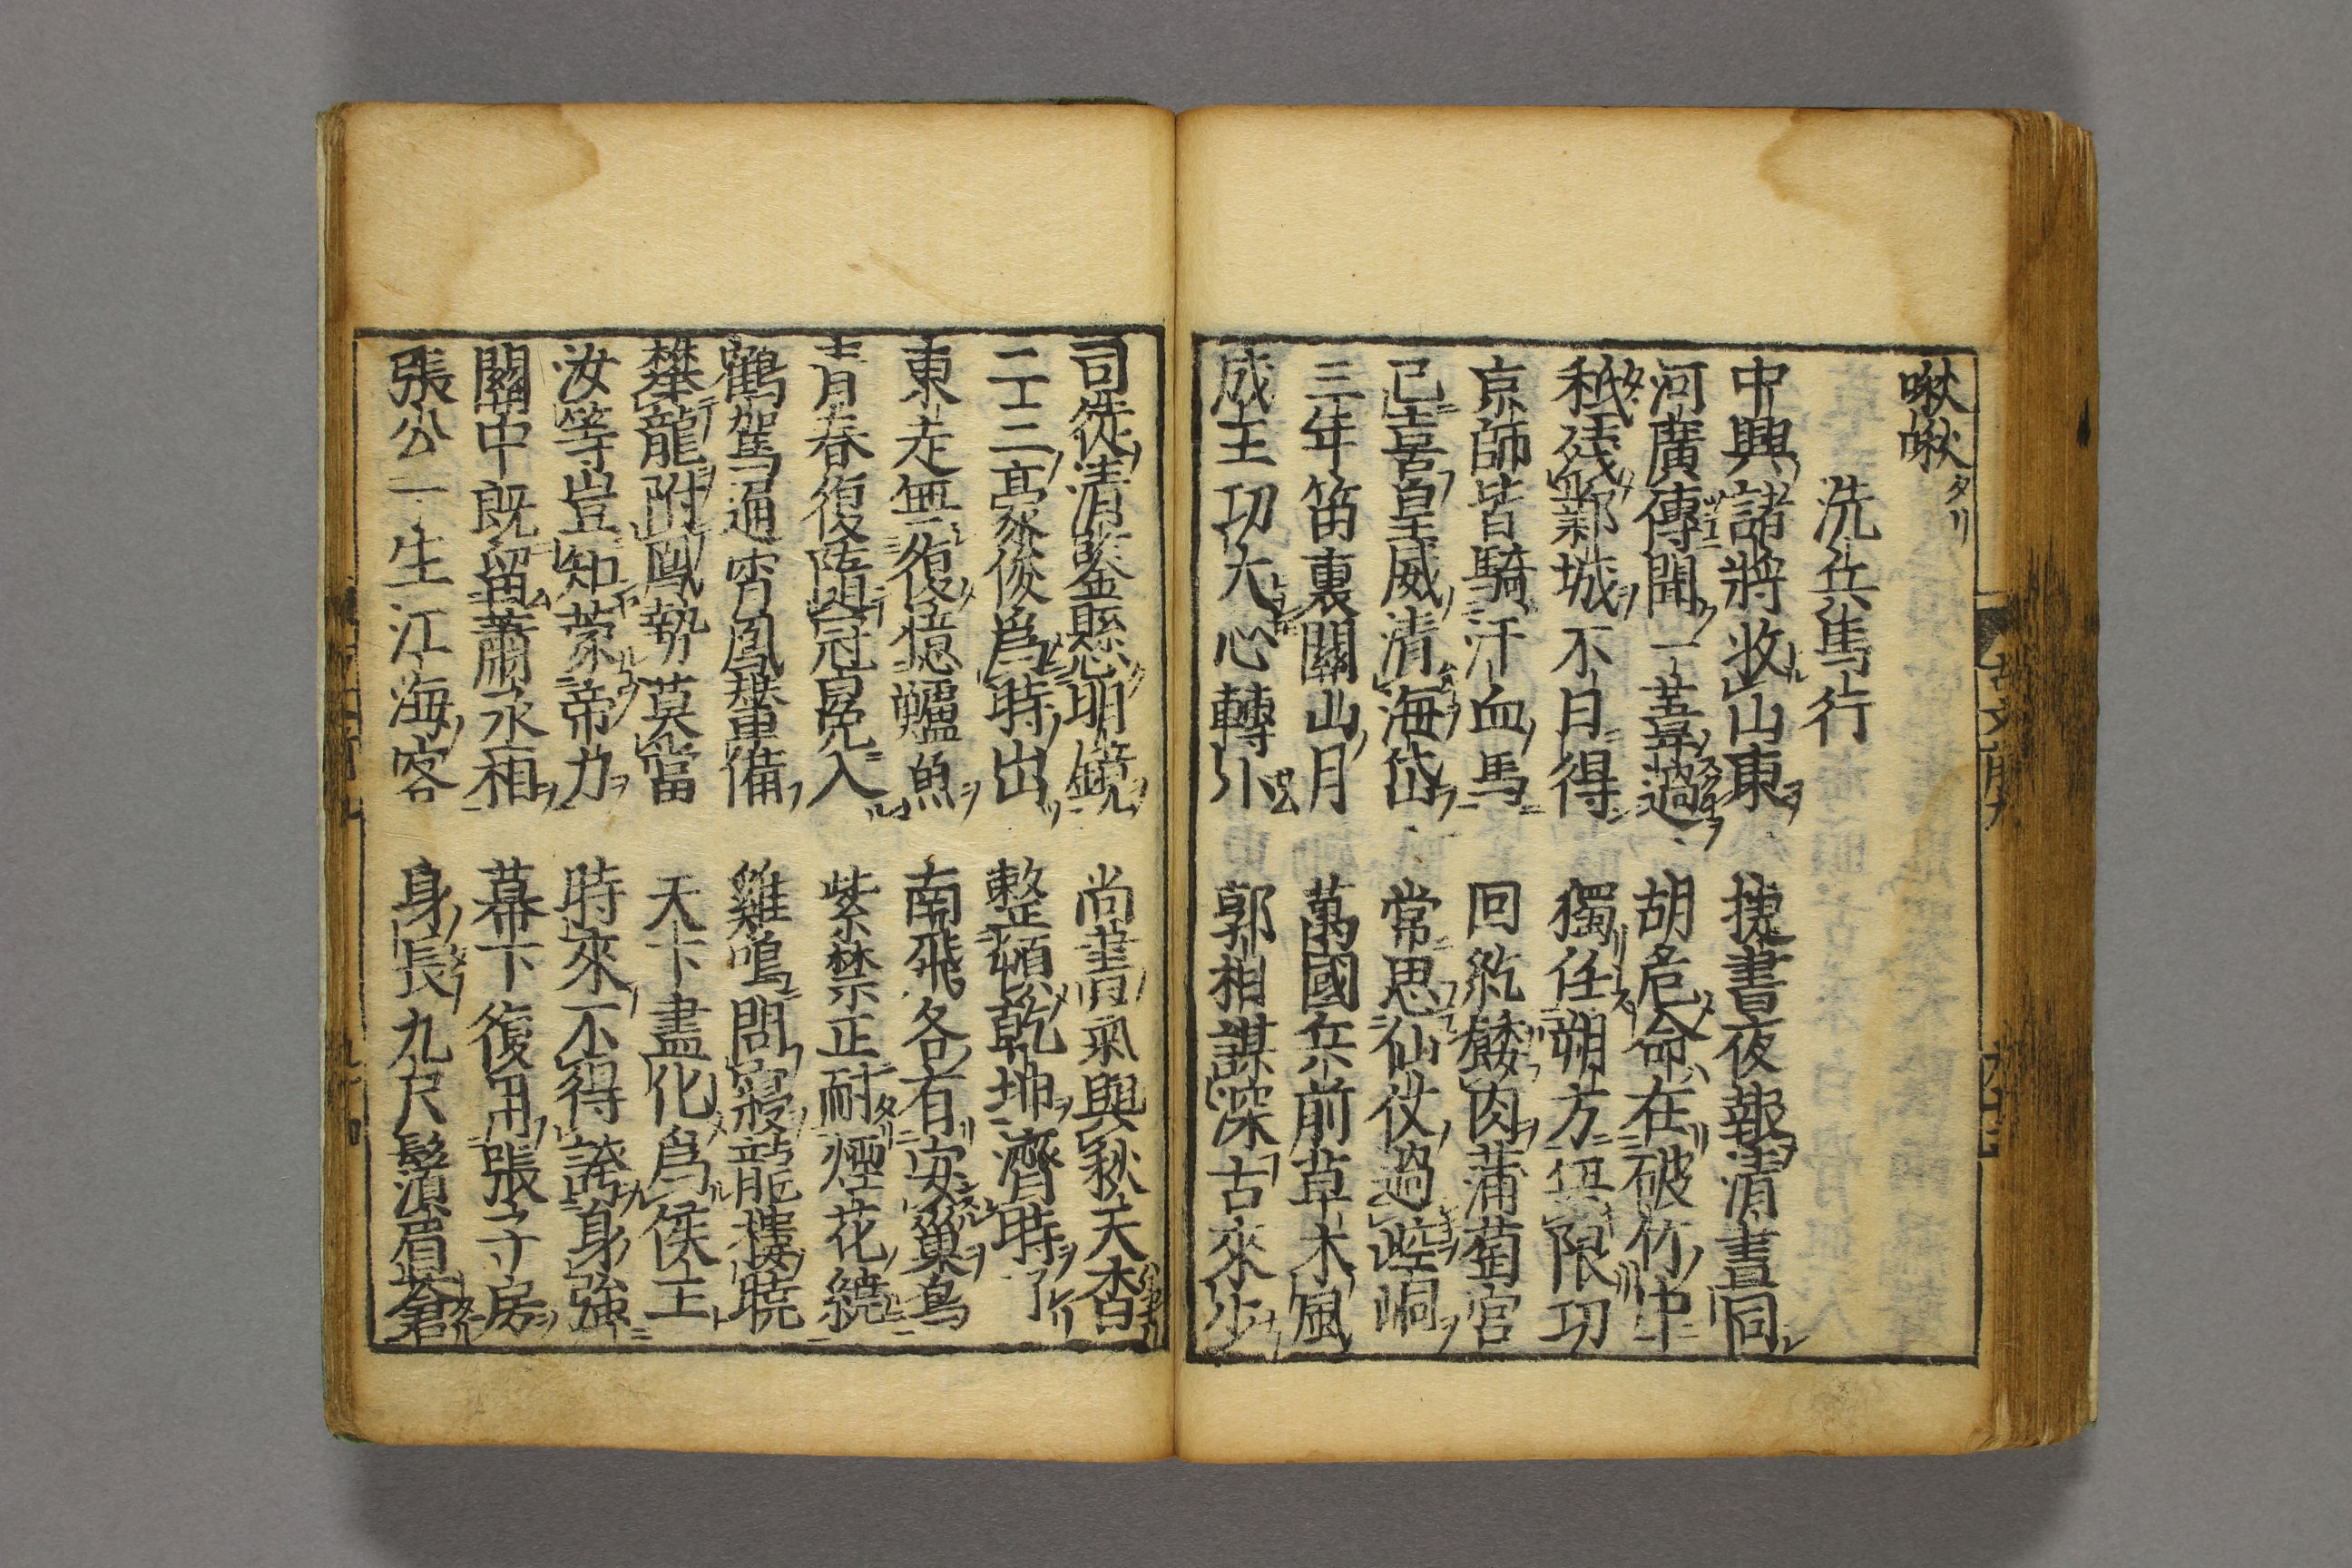 啾啾タリ
洗兵馬行
中興諸將收山東 捷書夜報清晝同
河廣傳聞一葦過 胡危命在破竹中
秖殘鄴城不日得 獨任朔方無限功
京師皆騎汗血馬 回紇餧肉蒲萄宮
已喜皇威清海岱 常思仙仗過崆峒
三年笛裏關山月 萬國兵前草木風
成王功大心轉小 郭相謀深古來少
司徒清鑒懸明鏡 尚書氣與秋天杳
二三豪俊爲時出 整頓乾坤濟時了
東走無復憶鱸魚 南飛各有安巢鳥
青春復隨冠冕入 紫禁正耐煙花繞
鶴駕通宵鳳輦備 雞鳴問寢龍樓曉
攀龍附鳳勢莫當 天下盡化爲侯王
汝等豈知蒙帝力 時來不得誇身強
關中既留蕭丞相 幕下復用張子房
張公一生江海客 身長九尺鬚眉蒼